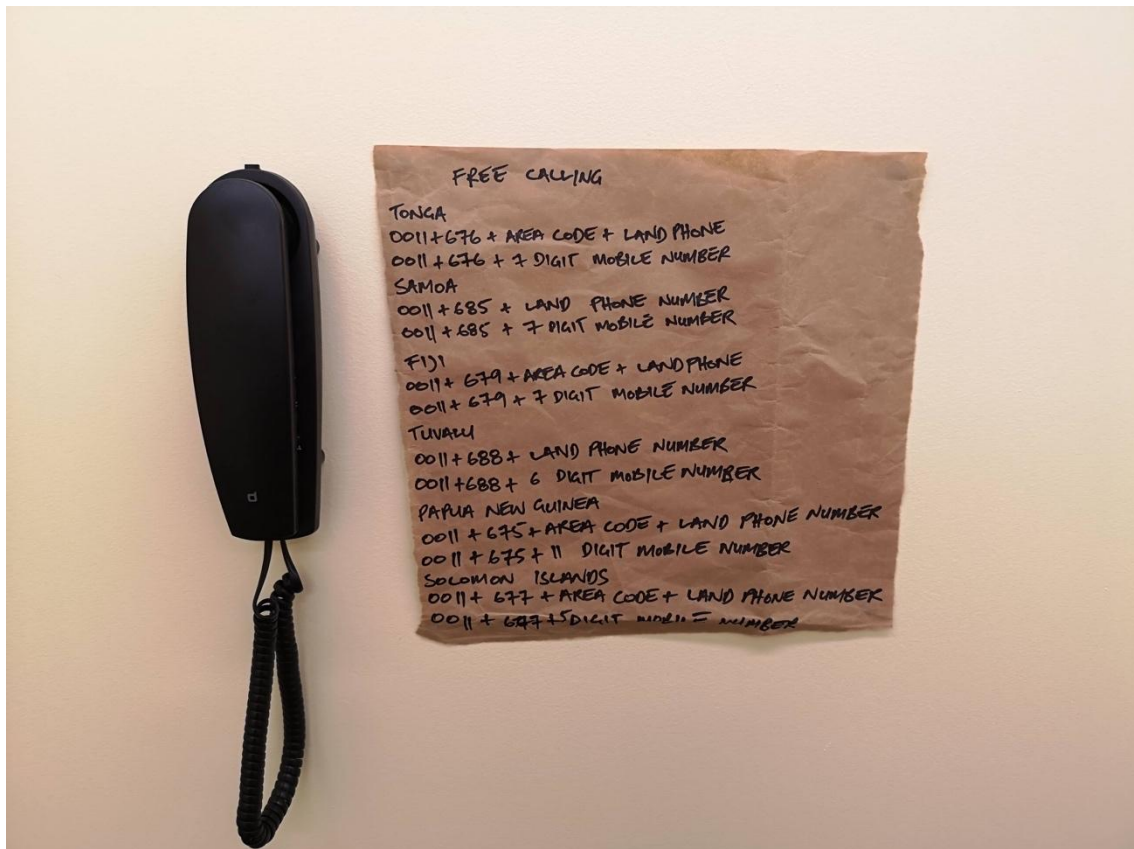 FREE CALLING
TONGA
0011+676 + AREA CODE + LAND PHONE
0011+676 + 7 DIGIT MOBILE NUMBER
SAMOA
0011+685 + LAND PHONE NUMBER
0011+685 + 7 DIGIT MOBILE NUMBER
FIJI
0011+ 679 + AREA CODE + LAND PHONE
0011+ 679 + 7 DIGIT MOBILE NUMBER
TUVALU
0011+688+ LAND PHONE NUMBER
0011+688+ 6 DIGIT MOBILE NUMBER
PAPUA NEW GUINEA
0011 + 675+ AREA CODE + LAND PHONE NUMBER
0011 + 675+ 11 DIGIT MOBILE NUMBER
SOLOMON ISLANDS
0011+ 677 + AREA CODE + LAND PHONE NUMBER
0011 + 677 +5 DIGIT MOBILE NUMBER